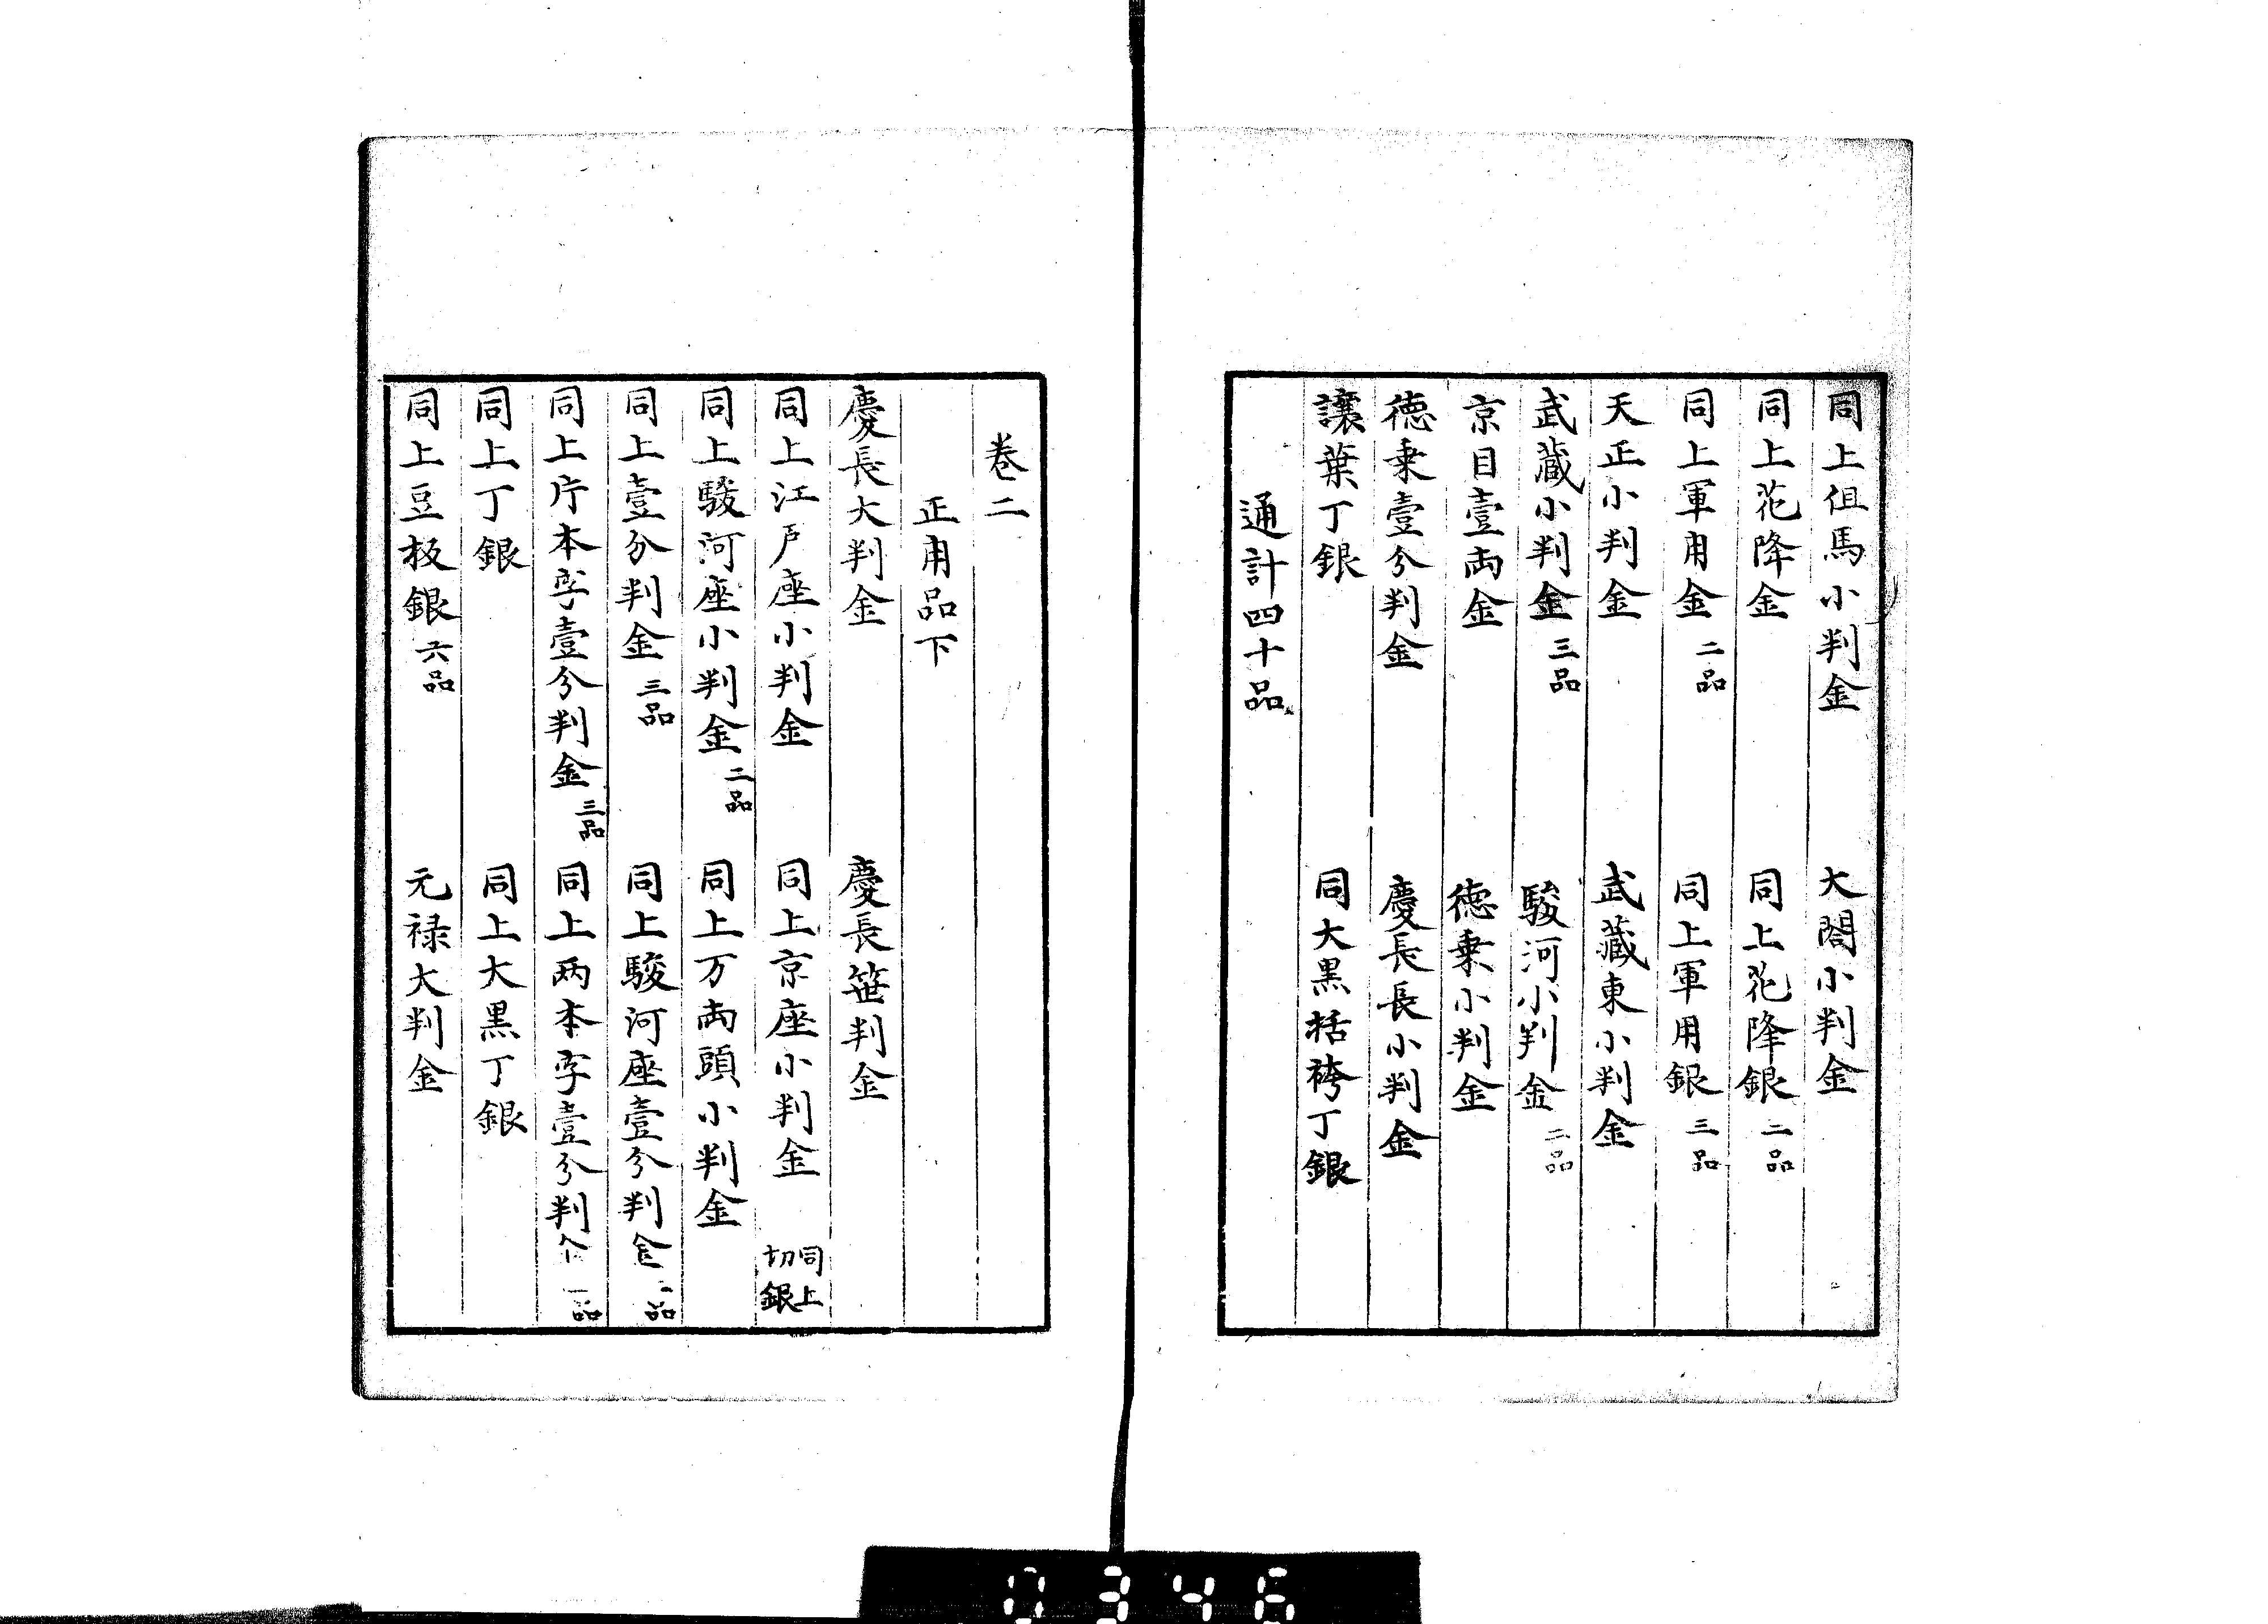 同上伹馬小判金　大閤小判金
同上花降金　同上花降銀 二品
同上軍用金 二品　同上軍用銀 三品
天正小判金　武藏東小判金
武藏小判金 三品　駿河小判金 二品
京目壹両金　徳乗小判金
徳乗壹分判金　慶長長小判金
讓葉丁銀　同大黒括袴丁銀
通計四十品
巻二
正用品下
慶長大判金　慶長笹判金
同上江戸座小判金　同上京座小判金 同上切銀
同上駿河座小判金 二品　同上万両頭小判金
同上壹分判金 三品　同上駿河座壹分判金 二品
同上片本字壹分判金 三品　同上两本字壹分判金 品
同上丁銀　同上大黒丁銀
同上豆板銀 六品　元禄大判金
0346